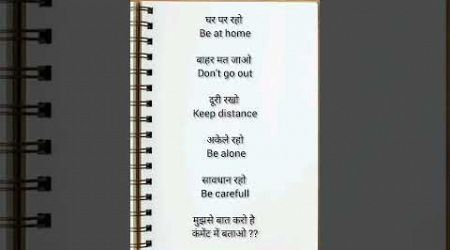 घर पर रहो
Be at home
बाहर मत जाओ
Don't go out
दूरी रखो
Keep distance
अकेले रहो
Be alone
सावधान रहो
Be carefull
मुझसे बात करो हे
कमेंट में बताओ ??